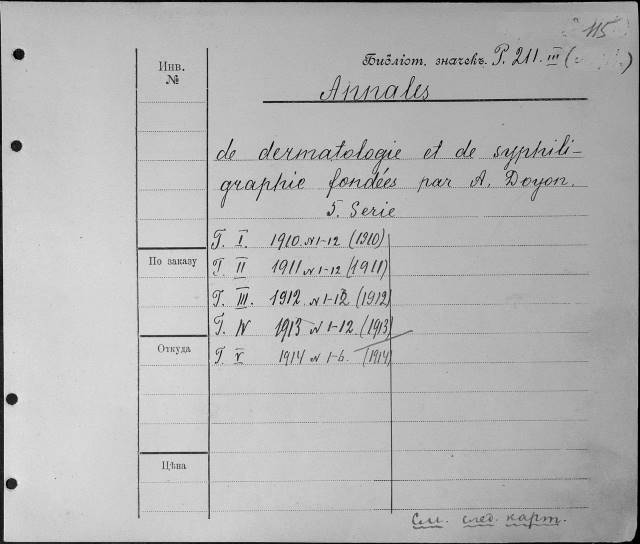 115
Инв. №
Библіот. значекъ. P. 211. III (
Annales
de dermatologie et de syphili-
graphie fondées par A. Doyon.
5. Serie
T. I. 1910. N 1-12 (1910)
По заказу
T. II 1911 N 1-12 (1911)
T. III. 1912. N 1-12 (1912)
T. IV 1913 N 1-12. (1913)
Откуда
T. V 1914 N 1-6. (1914)
Цѣна
См. след. карт.